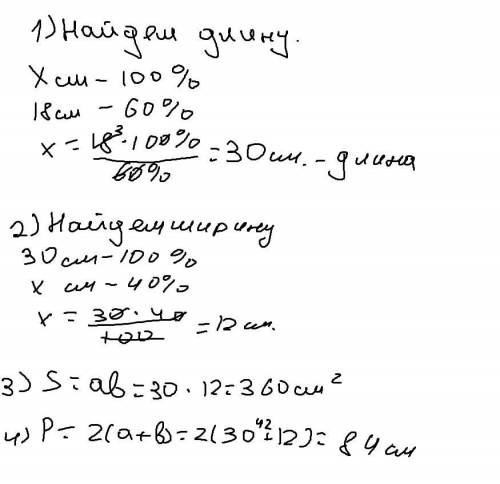 1) Найдем длину.
X см – 100 %
18 см – 60 %
x = 18³ · 100% / 60% = 30 см. – длина
2) Найдем ширину
30 см – 100 %
x см – 40%
x = 30 · 40 / 100 = 12 см.
3) S = ab = 30 · 12 = 360 см²
4) P = 2(a+b) = 2(30+12)⁴² = 84 см